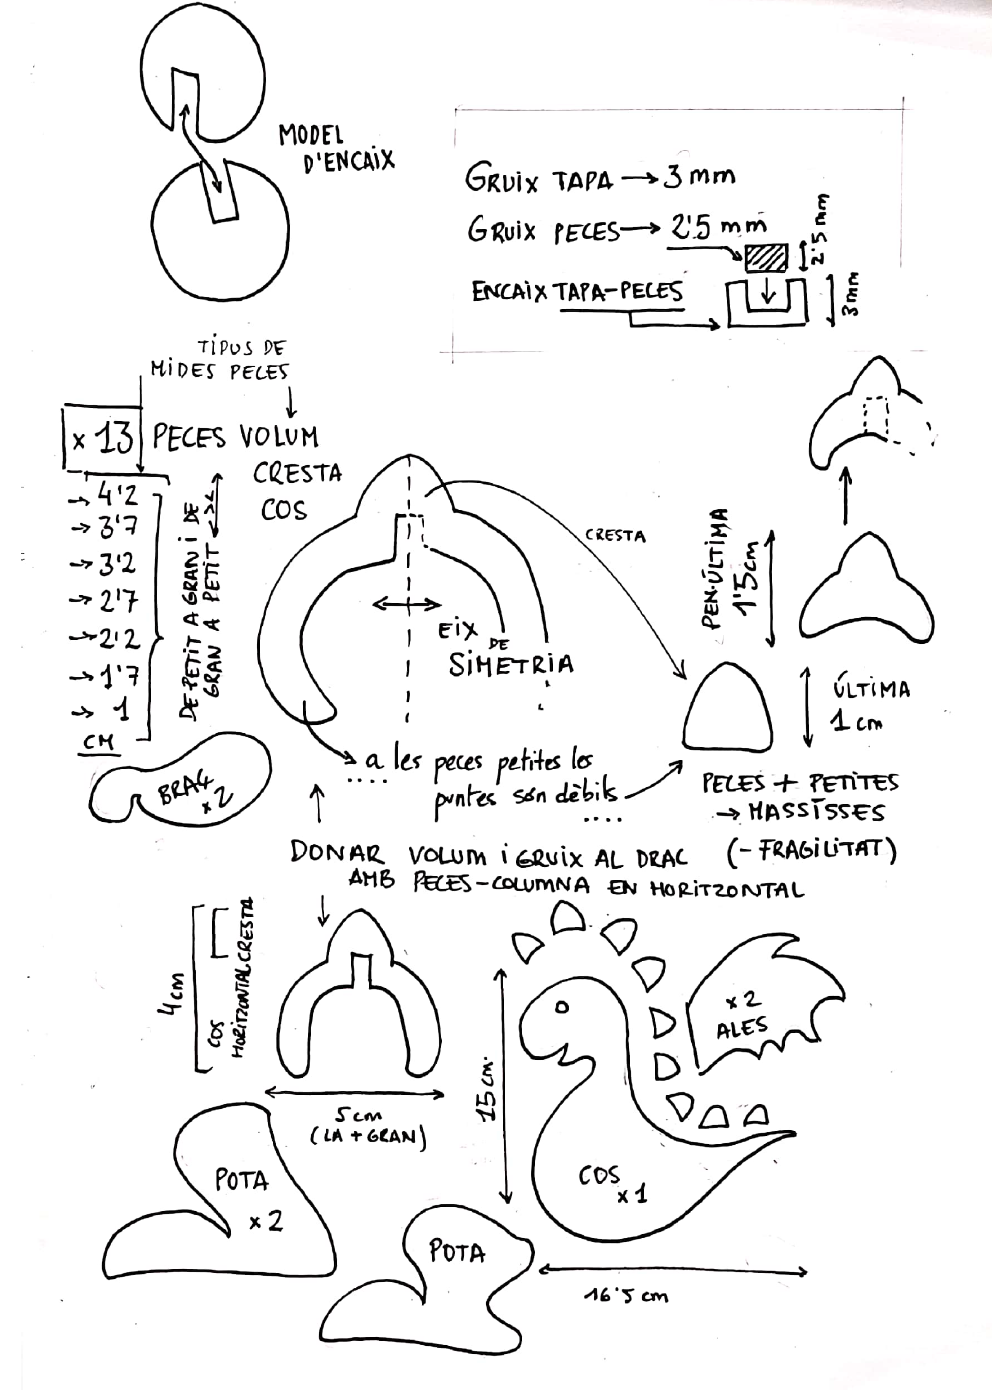 MODEL
D'ENCAIX
GRUIX TAPA → 3 mm
GRUIX PECES → 2'5 mm
2'5 mm
ENCAIX TAPA-PECES
3mm
TIPUS DE
MIDES PECES
x 13 PECES VOLUM
CRESTA
COS
→ 4'2
→ 3'7
→ 3'2
→ 2'7
→ 2'2
→ 1'7
→ 1
CM
DE PETIT A GRAN I DE
GRAN A PETIT
CRESTA
EIX DE
SIMETRIA
PEN-ÚLTIMA
1'5cm
ÚLTIMA
1 cm
BRAÇ
x 2
a les peces petites les
....
puntes són dèbils
....
PECES + PETITES
→ MASSÍSSES
(- FRAGILITAT)
DONAR VOLUM i GRUIX AL DRAC
AMB PECES-COLUMNA EN HORITZONTAL
4cm
COS
HORITZONTAL
CRESTA
5cm
(LA + GRAN)
15 cm.
x 2
ALES
COS
x 1
POTA
x 2
POTA
16'5 cm